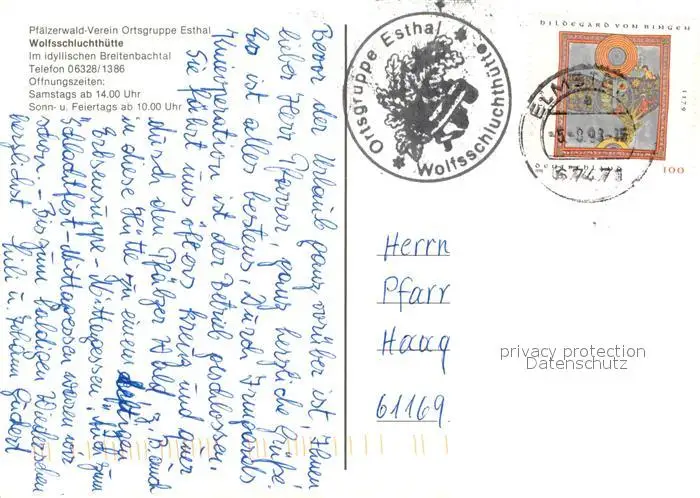 Pfälzerwald-Verein Ortsgruppe Esthal
Wolfsschluchthütte
Im idyllischen Breitenbachtal
Telefon 06328/1386
Öffnungszeiten:
Samstags ab 14.00 Uhr
Sonn- u. Feiertags ab 10.00 Uhr
Ortsgruppe Esthal
Wolfsschluchthütte
HILDEGARD VON BINGEN
1179
100
ELMST
67471
Bevor der Urlaub ganz vorüber ist, Ihnen
lieber Herr Pfarrer, ganz herzliche Grüße!
Es ist alles bestens, Durch Irmgards
Knieoperation ist der Betrieb geschlossen.
Sie fährt uns öfters kreuz und quer
durch den Pfälzer Wald, z.B. auch
in diese Hütte zu einem deftigen
Erbsensuppe-Mittagessen, Auch zum
Schlachtfest-Mittagessen waren wir
schon. - Bis zum baldigen Wiedersehen
Herrn
Pfarr
Haag
61169
privacy protection
Datenschutz